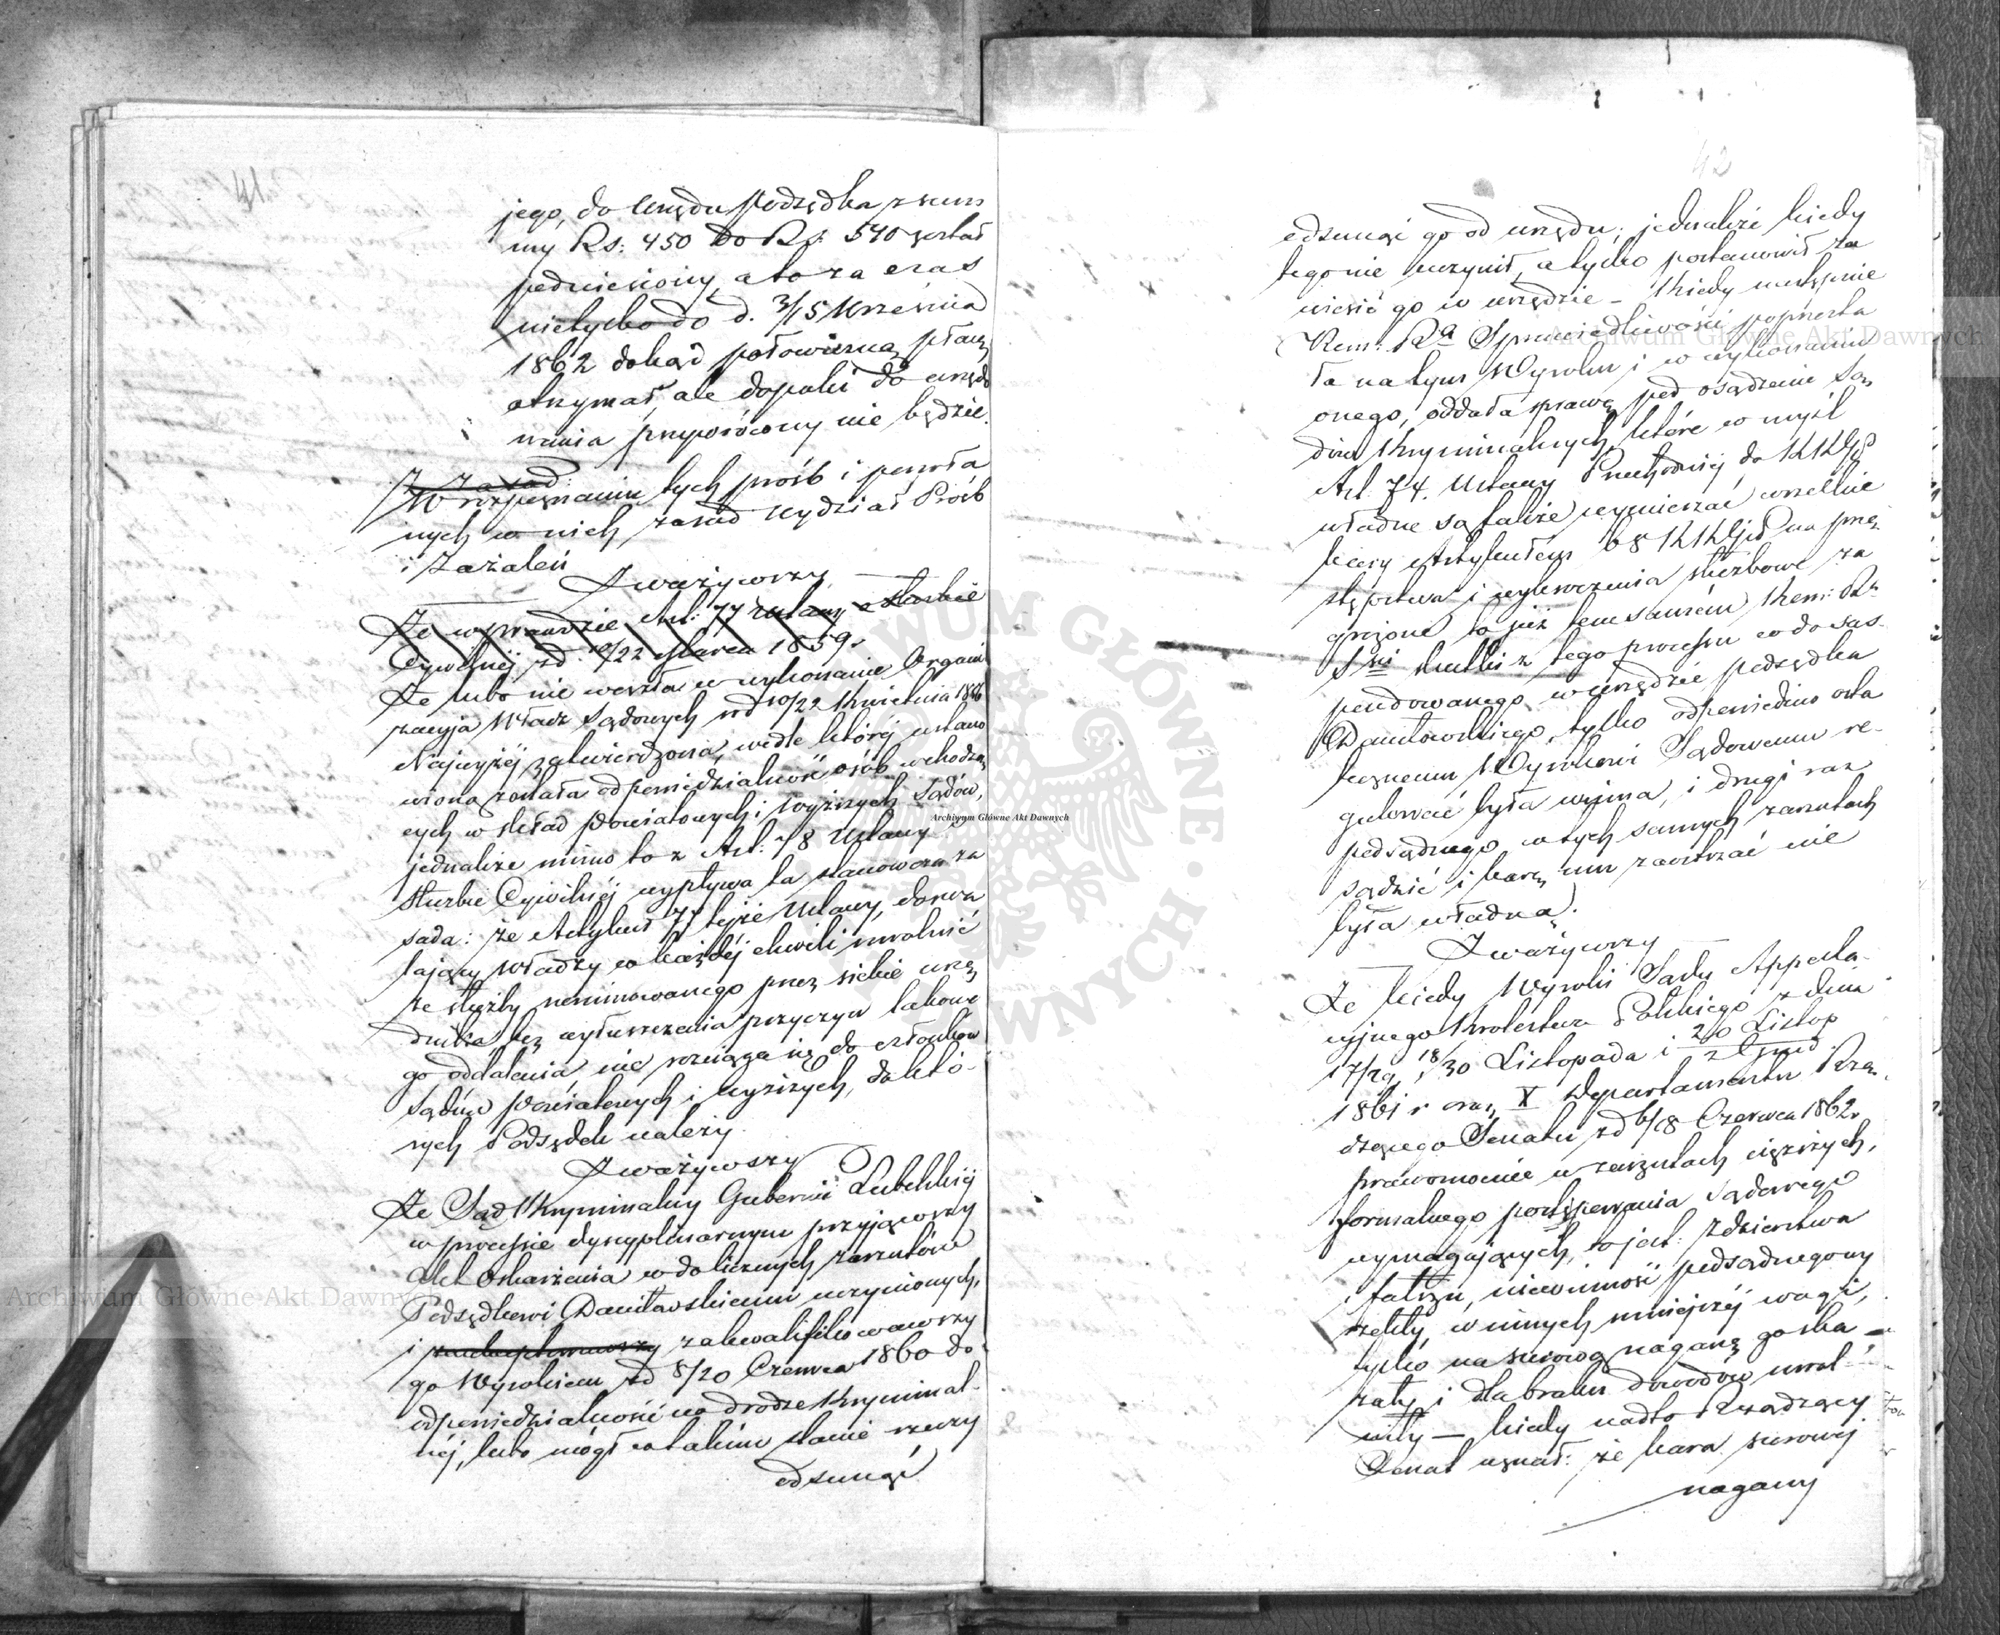 41
jego, do Urzędu Podsędka z sum
my Rs: 450 do Rs: 540 został
podniesiony, a to za czas
nietylko do d. 3/15 Września
1862 dokąd połowiczną płacę
otrzymał, ale dopóki do urzędo
wania przywrócony nie będzie.
Z zasad:
W rozpoznaniu tych próśb i powoła
nych w nich zasad Wydział Próśb
i Zażaleń
Zważywszy
Że wprawdzie Art: 77 Ustawy o służbie
Cywilnej z d. 10/22 Marca 1859 r
Że lubo nie weszła w wykonanie Organi
zacyja Władz Sądowych z d 10/22 Kwietnia 18
Najwyżej zatwierdzona, wedle której ustano
wiona została odpowiedzialność osób wchodzą
cych w skład Powiatowych i Wyższych Sądów,
jednakże mimo to z Art: 78 Ustawy o
Służbie Cywilnej wypływa ta stanowcza za
sada: że Artykuł 77 tejże Ustawy, dozwa
lający Władzy w każdej chwili uwolnić
ze służby nominowanego przez siebie urzę
dnika bez wytłuszczenia przyczyn takowe
go oddalenia, nie rozciąga się do członków
Sądów Powiatowych i Wyższych, do któ-
rych Podsędek należy
Zważywszy
Że Sąd Kryminalny Gubernii Lubelskiej
w procesie dyscyplinarnym przyjąwszy
Akt Oskarżenia co do licznych zarzutów
Podsędkowi Daniławskiemu uczynionych,
i zakwalifikowawszy
go Wyrokiem z d 8/20 Czerwca 1860 do
odpowiedzialności na drodze Kryminal-
nej, lubo mógł w takim stanie rzeczy
odsunąć
42
odsunąć go od urzędu; jednakże kiedy
tego nie uczynił, a tylko postanowił za
wiesić go w urzędzie – Kiedy następnie
Kom: Rа Sprawiedliwości poprzesta
ła na tym Wyroku i w wykonaniu
onego, oddała sprawę pod osądzenie Są
dów Kryminalnych, które w myśl
Art. 74. Ustawy Przechodniej do KKGiP
władne są także wymierzać wszelkie
kary Artykułem 68 KKGiP na prze
stępstwa i wykroczenia służbowe za
grożone, to już tem samem Kom: Rz
Sści skutki z tego procesu co do zas
pendowanego w urzędzie podsędka
Daniławskiego, tylko odpowiednio osta
tecznemu Wyrokowi Sądowemu re-
gulować była winna, i drugi raz
podsądnego w tych samych zarzutach
sądzić i karę mu zaostrzać nie
była władną.
Zważywszy
Że kiedy Wyroki Sądu Appella-
cyjnego Królestwa Polskiego z dnia
17/29, 18/30 Listopada i 20 Listop / 2 Grud
1861 r oraz X Departamentu Rzą
dzącego Senatu z d 6/18 Czerwca 1862 r
prawomocnie w zarzutach cięższych,
formalnego postępowania sądowego
wymagających, to jest: zdzierstwa
i fałszu, niewinność podsądnego wy
rzekły, w innych mniejszej wagi,
tylko na surową naganę go ska
zały i dla braku dowodów uwol
niły – kiedy nadto Rządzący
Senat uznał: że kara surowej
nagany
Archiwum Główne Akt Dawnych
Archiwum Główne Akt Dawnych
Archiwum Główne Akt Dawnych